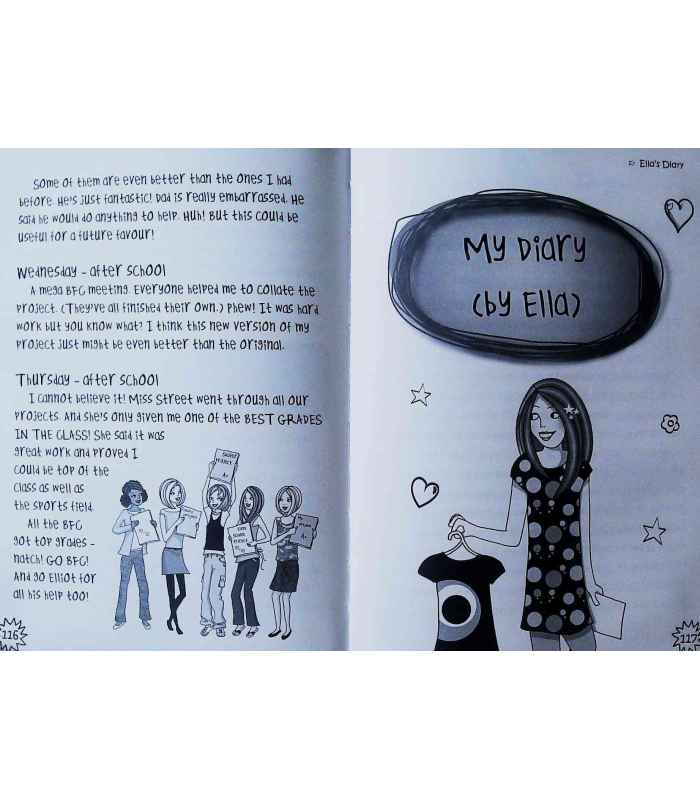 Some of them are even better than the ones I had
before. He's just fantastic! Dad is really embarrassed. He
said he would do anything to help. Huh! But this could be
useful for a future favour!
Wednesday – after school
A mega BFC meeting. Everyone helped me to collate the
project. (They've all finished their own.) Phew! It was hard
work but you know what? I think this new version of my
project just might be even better than the original.
Thursday – after school
I cannot believe it! Miss Street went through all our
projects. And she's only given me one of the BEST GRADES
IN THE CLASS! She said it was
great work and proved I
could be top of the
class as well as
the sports field.
All the BFC
got top grades –
natch! GO BFC!
And go Elliot for
all his help too!
116
Ella's Diary
My Diary
(by Ella)
117